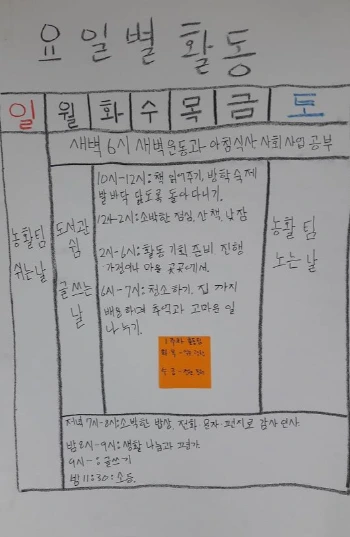 요일별 활동
일 월 화 수 목 금 토
새벽 6시 새벽운동과 아침식사 사회사업 공부
농활팀
쉬는날
도서관
쉼
글쓰는
날
10시-12시: 책 읽어주기, 방학숙제
발바닥 닳도록 돌아다니기.
12시-2시: 소박한 점심, 산책, 낮잠
2시-6시: 활동 기획 준비 진행
가정에서 마을 곳곳에서.
6시-7시: 청소하기, 집 까지
배웅하며 추억과 고마운 일
나누기.
농활 팀
노는 날
저녁 7시-8시: 소박한 밥상, 전화 문자 편지로 감사 인사
밤 8시-9시: 생활 나눔과 평가
9시-: 글쓰기
밤 11:30: 소등.